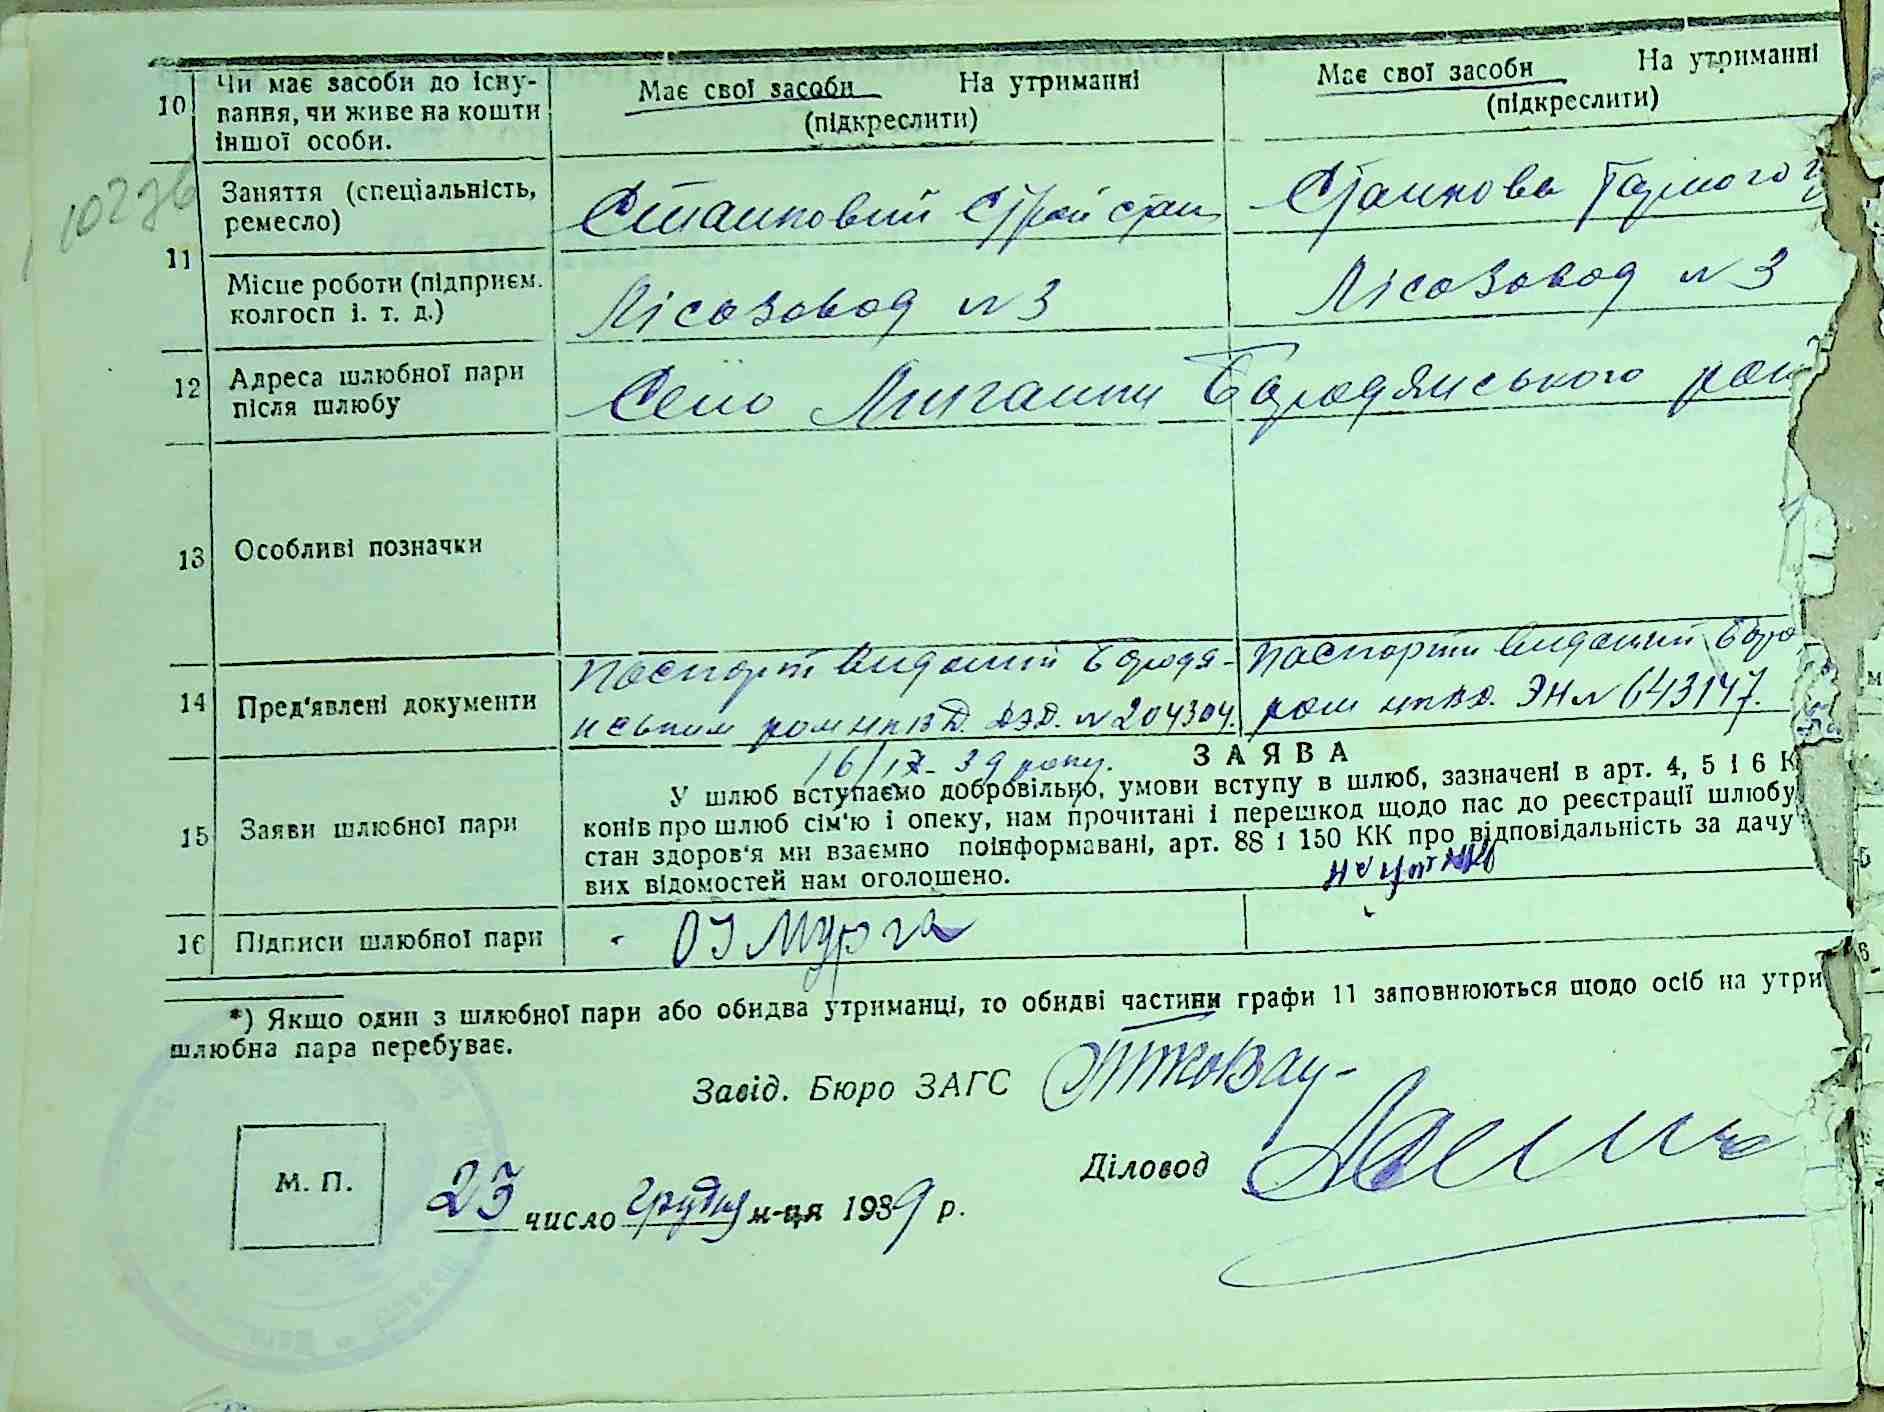 10 Чи має засоби до існу-
вання, чи живе на кошти
іншої особи.
Має свої засоби На утриманні
(підкреслити)
Має свої засоби На утриманні
(підкреслити)
10276
11 Заняття (спеціальність,
ремесло)
Станковий
Місце роботи (підприєм.
колгосп і. т. д.)
Лісозавод №3
Лісозавод №3
12 Адреса шлюбної пари
після шлюбу
Село Бородянського рай
13 Особливі позначки
14 Пред'явлені документи
Паспорт виданий Бородя-
нським НКВД. №204304.
16/IX-39 року.
Паспорт виданий Боро
НКВД. ЭН №643147.
15 Заяви шлюбної пари
ЗАЯВА
У шлюб вступаємо добровільно, умови вступу в шлюб, зазначені в арт. 4, 5 і 6 К
конів про шлюб сім'ю і опеку, нам прочитані і перешкод щодо нас до реєстрації шлюбу
стан здоров'я ми взаємно поінформавані, арт. 88 і 150 КК про відповідальність за дачу
вих відомостей нам оголошено.
16 Підписи шлюбної пари
Мурга
*) Якщо один з шлюбної пари або обидва утриманці, то обидві частини графи 11 заповнюються щодо осіб на утри
шлюбна пара перебуває.
Завід. Бюро ЗАГС
Діловод
М. П.
23 число грудня м-ця 1939 р.